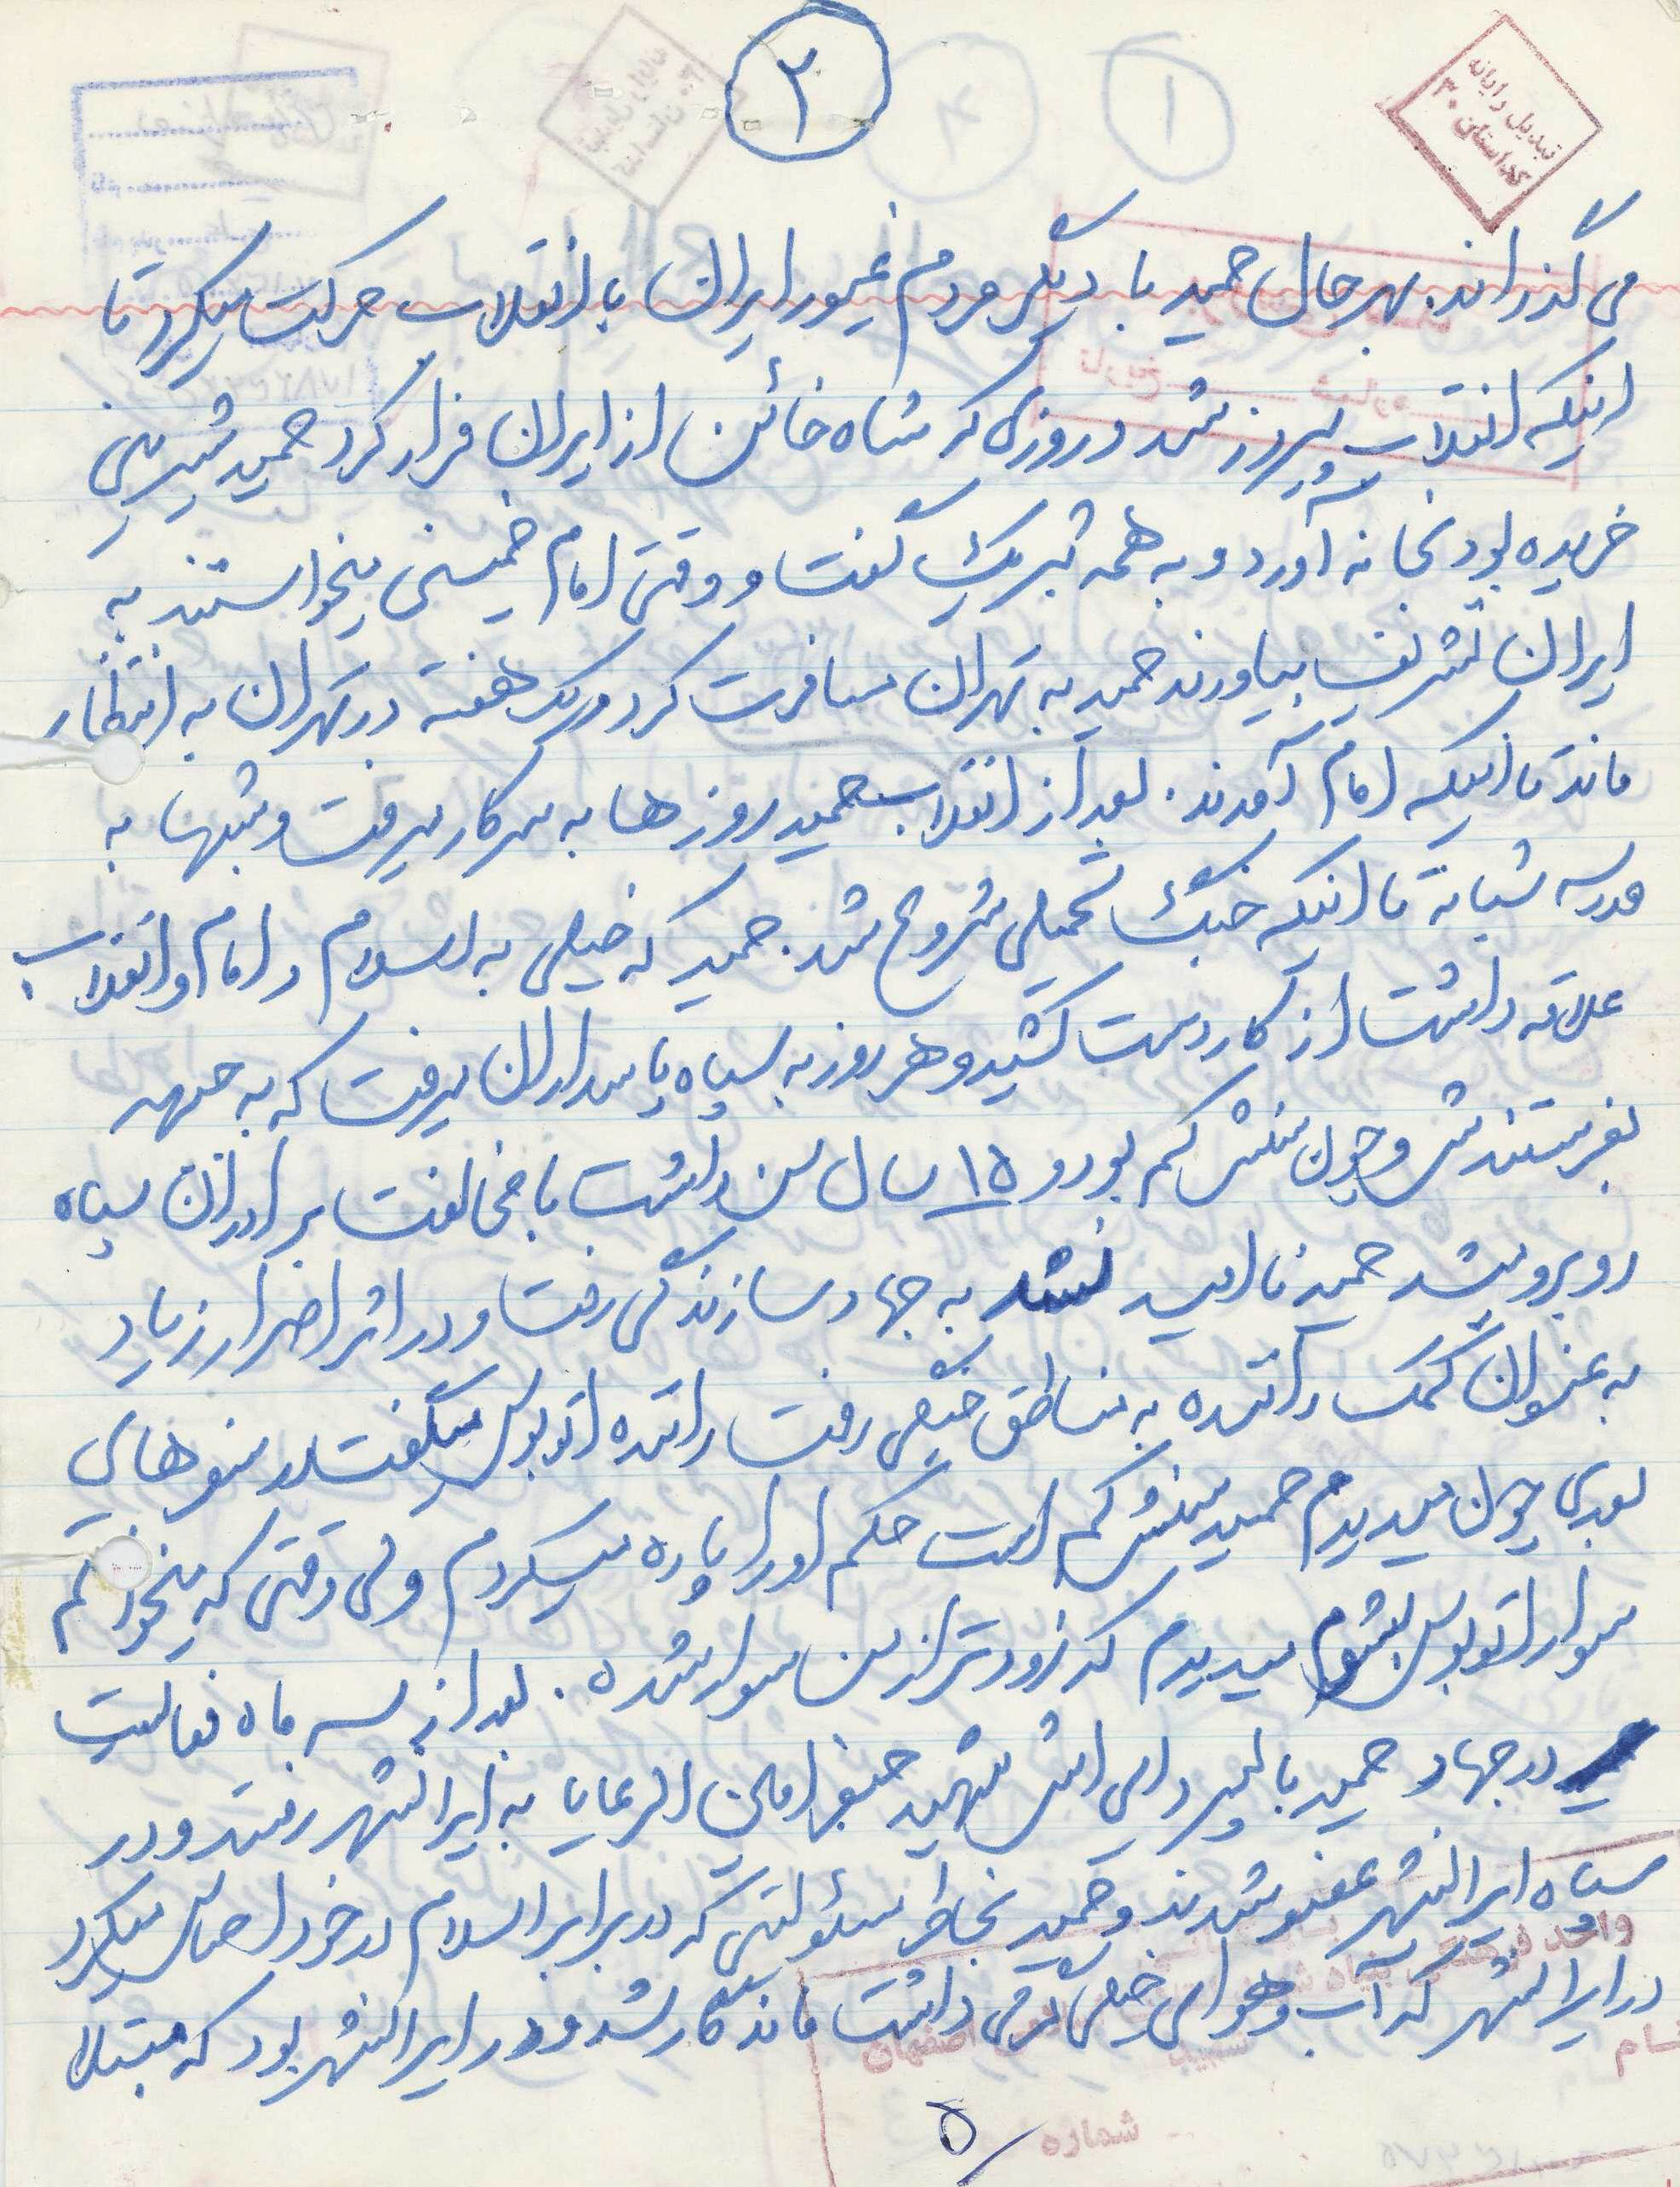 ۲
تبدیل رایانه
کد استان ۳۰
می گذراند. بهرحال حمید با دیگر مردم غیور ایران با انقلاب حرکت میکرد تا
اینکه انقلاب پیروز شد و روزی که شاه خائن از ایران فرار کرد حمید شیرینی
خریده بود بخانه آورد و به همه تبریک گفت و وقتی امام خمینی میخواستند به
ایران تشریف بیاورند حمید به تهران مسافرت کرد و یک هفته در تهران به انتظار
ماند تا اینکه امام آمدند. بعد از انقلاب حمید روزها به سر کار میرفت و شبها به
مدرسه شبانه تا اینکه جنگ تحمیلی شروع شد. حمید که خیلی به اسلام و امام و انقلاب
علاقه داشت از کار دست کشید و هر روز به سپاه پاسداران میرفت که به جبهه
بفرستندش و چون سنش کم بود و ۱۵ سال سن داشت با مخالفت برادران سپاه
روبرو میشد حمید ناامید نشد به جهاد سازندگی رفت و در اثر اصرار زیاد
به عنوان کمک راننده به مناطق جنگی رفت راننده اتوبوس میگفت در سفرهای
بعدی چون میدیدم حمید سنش کم است حکم او را پاره میکردم ولی وقتی که میخواستم
سوار اتوبوس بشوم میدیدم که زودتر از من سوار شده. بعد از سه ماه فعالیت
در جهاد حمید با پسر دایی اش شهید جعفر امین الرعایا به ایرانشهر رفتند و در
سپاه ایرانشهر عضو شدند و حمید بخاطر مسئولیتی که در برابر اسلام در خود احساس میکرد
در ایرانشهر که آب و هوای خیلی گرمی داشت ماندگار شد و در ایرانشهر بود که مبتلا
۵